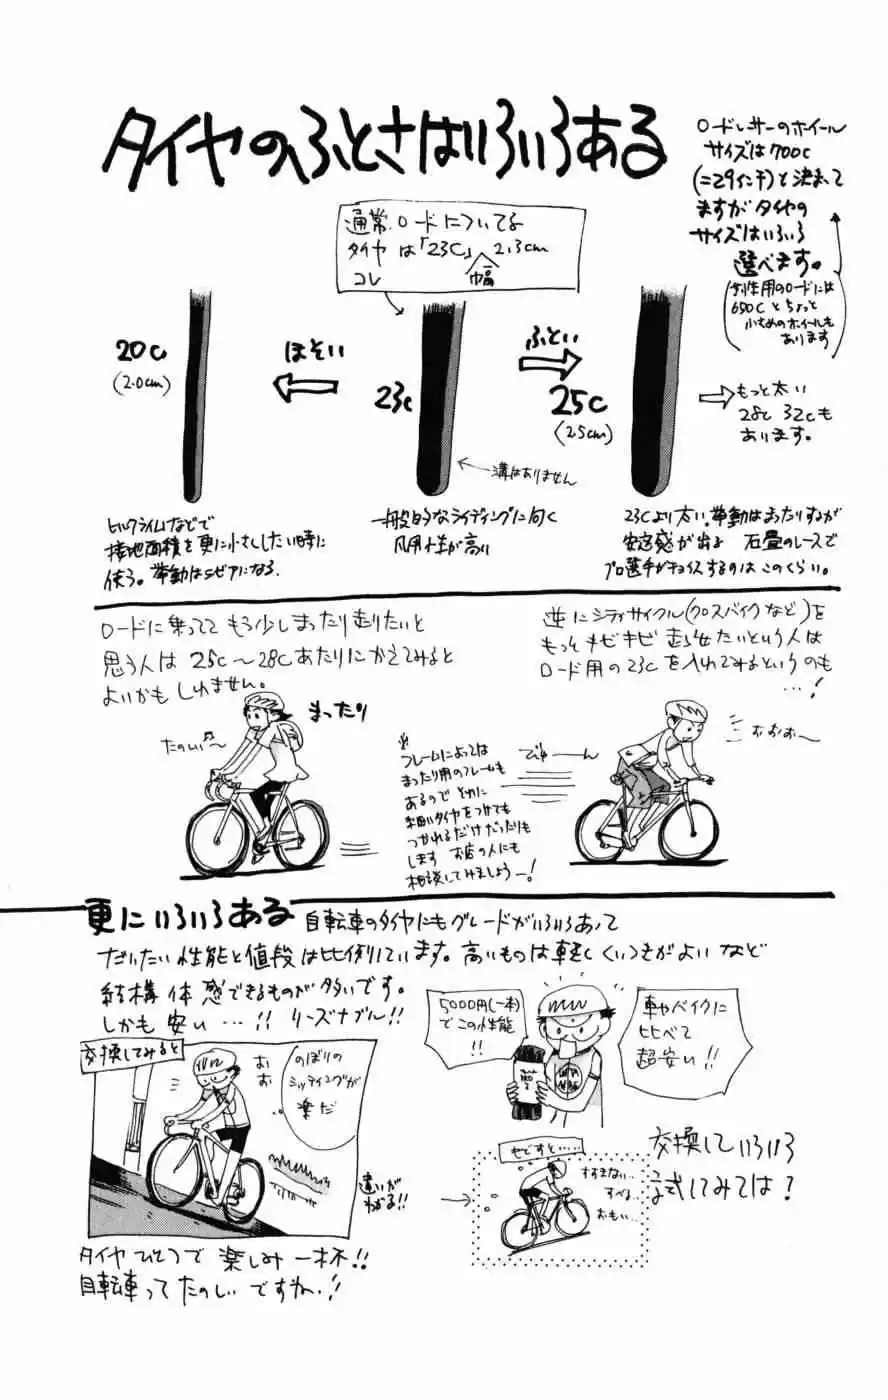 タイヤのふとさはいろいろある
ロードレーサーのホイール
サイズは700c
(=29インチ)と決まって
ますがタイヤの
サイズはいろいろ
選べます。
(女性用のロードには
650Cとちょっと
小さめのホイールも
あります)
通常ロードについてる
タイヤは「23C」2.3cm
コレ 幅
20c
(2.0cm)
ほそい
23c
ふとい
25c
(2.5cm)
もっと太い
28c 32cも
あります。
溝はありません
ヒルクライムなどで
接地面積を更に小さくしたい時に
使う。挙動はシビアになる.
一般的なライディングに向く
汎用性が高い
23Cより太い。挙動はまったりするが
安定感が出る 石畳のレースで
プロ選手がチョイスするのはこのくらい。
ロードに乗っててもう少しまったり走りたいと
思う人は25c〜28cあたりにかえてみると
よいかもしれません。
逆にシティサイクル(クロスバイクなど)を
もっとキビキビ走らせたいという人は
ロード用の23cを入れてみるというのも
…!
まったり
たのしい〜
※
フレームによっては
まったり用のフレームも
あるので それに
細いタイヤをつけても
つかれるだけだったりも
します お店の人にも
相談してみましょう—!
びゅーん
おおお〜
更にいろいろある 自転車のタイヤにもグレードがいろいろあって
だいたい性能と値段は比例しています。高いものは軽くくいつきがよいなど
結構体感できるものが多いです。
しかも安い…!! リーズナブル!!
5000円(一本)
でこの性能
!!
車やバイクに
比べて
超安い!!
交換してみると
おお
のぼりの
シッティングが
楽だ
違いが
わかる!!
もどすと……
すすまない…
すべる…
おもい…
交換していろいろ
試してみては?
タイヤひとつで楽しみ一杯!!
自転車ってたのしいですね!